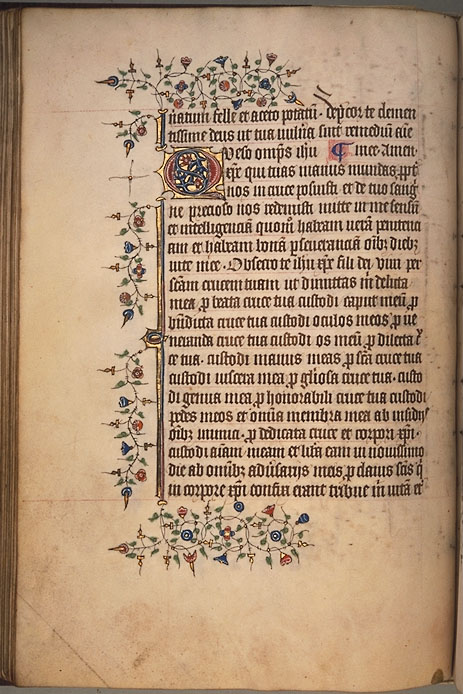 natum felle et aceto potatū · dep̄cor te clemen
tissime deus ut tua vulnā sint remediū aīe
O Veso omp̄s ihū mee. Amen.
xp̄e qui tuas manus mundas ꝓpt̄
nos in cruce posuisti et de tuo sang
ne precioso nos redemisti mitte in me sensū
et intelligenciā quom̄ habeam verā penitenci
am et habeam bonā ꝑseveranciā oībȝ diebȝ
vite mee · Obsecro te ihū xp̄e fili dei vivi per
scām crucem tuam ut dimittas m̄ delicta
mea ꝓ beata cruce tua custodi caput meū ꝓ
bn̄dicta cruce tua custodi oculos meos ꝓ ve
neranda cruce tua custodi os meū ꝓ dilecta c̄
ce tua · custodi manus meas ꝓ scā cruce tua
custodi viscera mea ꝓ gl̄iosa cruce tua · custo
di genua mea ꝓ honorabili cruce tua custodi
pedes meos et omīa membra mea ab insidijs
oībȝ inimici · ꝓ dedicata cruce et corpori xp̄i ·
custodi aīam meam et lib̄a eam in novissimo
die ab omībȝ adv̄sarijs meis ꝓ clavis scīs q̄
in corpore xp̄i confixa erant tribue m̄ vitā et̄